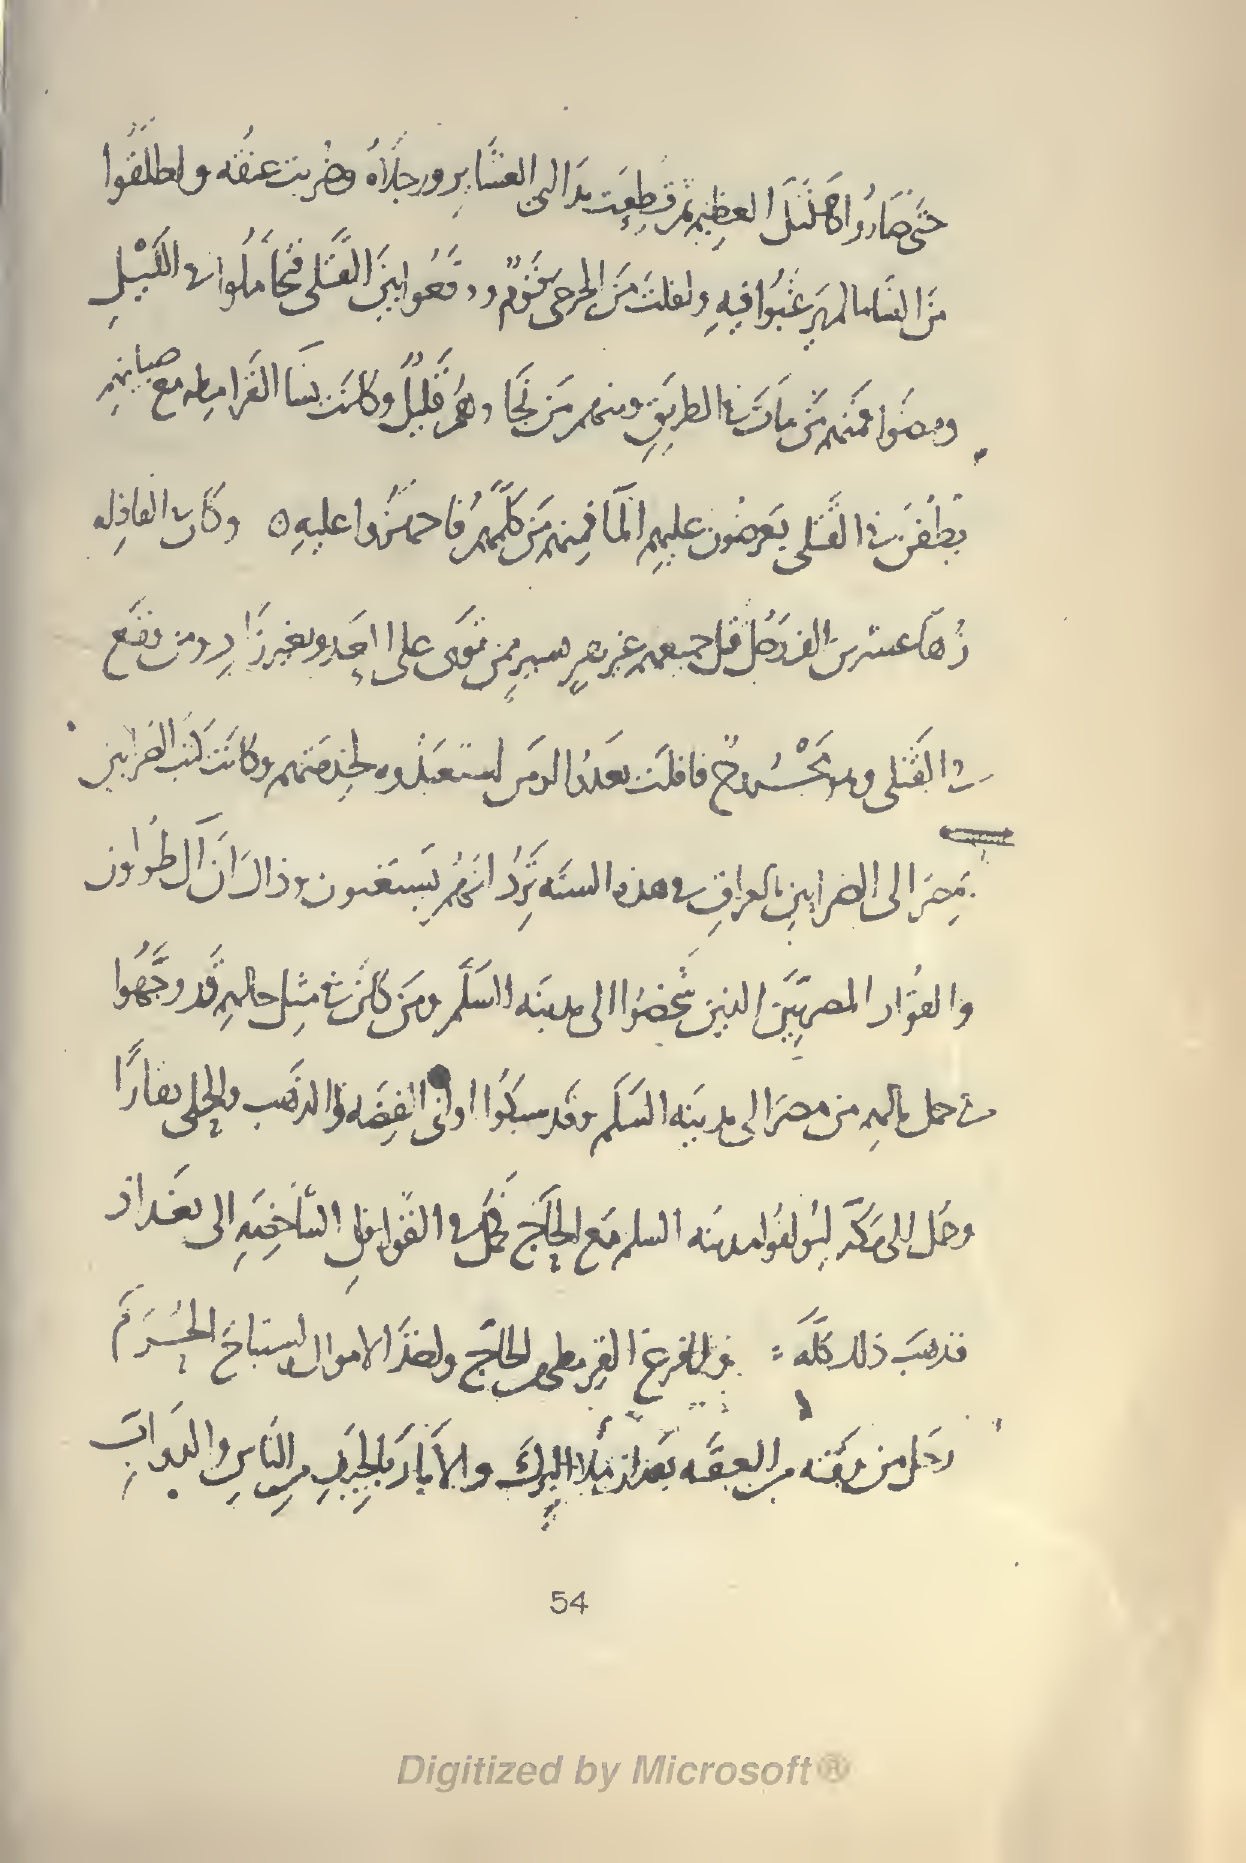 حتى صاروا كالتل العظيم ثم قطعت يدا ابى العشاير ورجلاه وضربت عنقه واطلقوا
من النسا ما لم يرغبوا فيه وافلت من الجرحى قوم ووقعوا بين القتلى فتحاملوا فى الليل
ومضوا فمنهم من مات فى الطريق ومنهم من نجا وهم قليل وكانت نسا القرامطه مع صبيانهم
يطفن فى القتلى يعرضون عليهم المآ فمن كلمهم فاجهزوا عليه ٥ وكان فى القافله
زهآ عشرين الف رجل قتل جميعهم غير نفر يسير ممن قوى على العدو بغير زاد ومن وقع
فى القتلى وهو مجروح فافلت بعد او من استعبدوه لخدمتهم وكانت كتب الضرابين
بمصر الى الضرابين بالعراق فى هذه السنه ترد انهم يستغنون وذاك ان آل طولون
والقواد المصريين الذين شخصوا الى مدينه السلم ومن كان فى مثل حالهم قد وجهوا
فى حمل مالهم من مصر الى مدينه السلم وقد سبكوا اوانى الفضه والذهب والحلى نقارًا
وحمل الى مكه ليوافوا مدينه السلم مع الحاج فحمل فى القوافل الشاخصه الى بغداد
فذهب ذلك كله : فلما فرغ القرمطى من الحاج واخذ الاموال واستباح الحرم
رحل من وقته من العقبه بعد ان ملا البرك والابار بالجيف من الناس والدواب
54
Digitized by Microsoft®